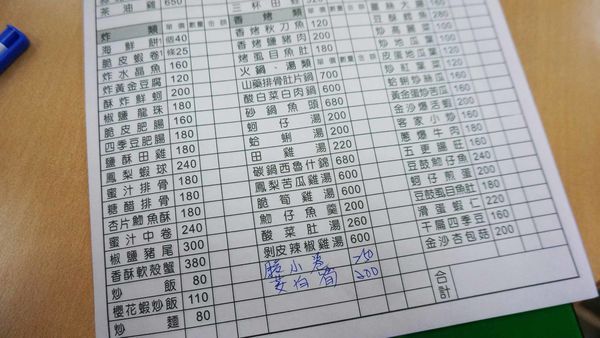 茶油雞 650
炸類 單價 數量 金額
海鮮餅 1個40
脆皮蝦卷 1條25
炸水晶魚 160
炸黃金豆腐 120
酥炸鮮蚵 200
椒鹽龍珠 180
脆皮肥腸 160
四季豆肥腸 180
鹽酥田雞 180
鳳梨蝦球 240
蜜汁排骨 180
糖醋排骨 180
杏片魩魚酥 180
蜜汁中卷 240
椒鹽豬尾 300
香酥軟殼蟹 380
炒飯 80
櫻花蝦炒飯 110
炒麵 80
三杯田
香烤類 單價 數量 金額
香烤秋刀魚 120
香烤鹽豬肉 200
烤虱目魚肚 180
火鍋、湯類 單價 數量 金額
山藥排骨肚片鍋 700
酸白菜白肉鍋 600
砂鍋魚頭 680
蚵仔湯 200
蛤蜊湯 200
田雞湯 220
碳鍋西魯什錦 680
鳳梨苦瓜雞湯 600
脆筍雞湯 600
魩仔魚羹 200
酸菜肚湯 260
剝皮辣椒雞湯 600
小卷 250
茭白筍 200
豆酥鱈魚
炒高麗菜
炒地瓜葉
皮蛋地瓜葉
蛤蜊炒絲瓜
黃金蛋炒苦瓜 160
客家小炒 160
蔥爆牛肉 180
五更腸旺 160
豆鼓魩仔魚 240
蚵仔煎蛋 200
豆鼓虱目魚肚 180
滑蛋蝦仁 220
干扁四季豆 160
金沙杏包菇 200
合計